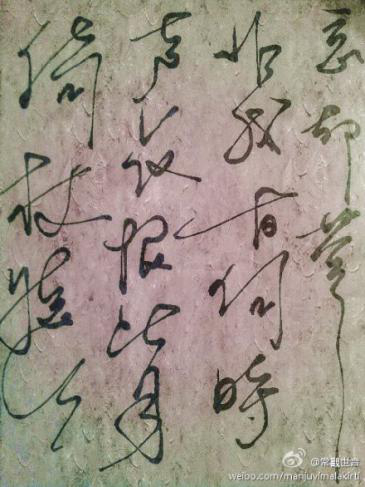 倚杖聽江
声長恨此身
非我有何時
忘却營
@常觀世音
weibo.com/manjuvimalakirti